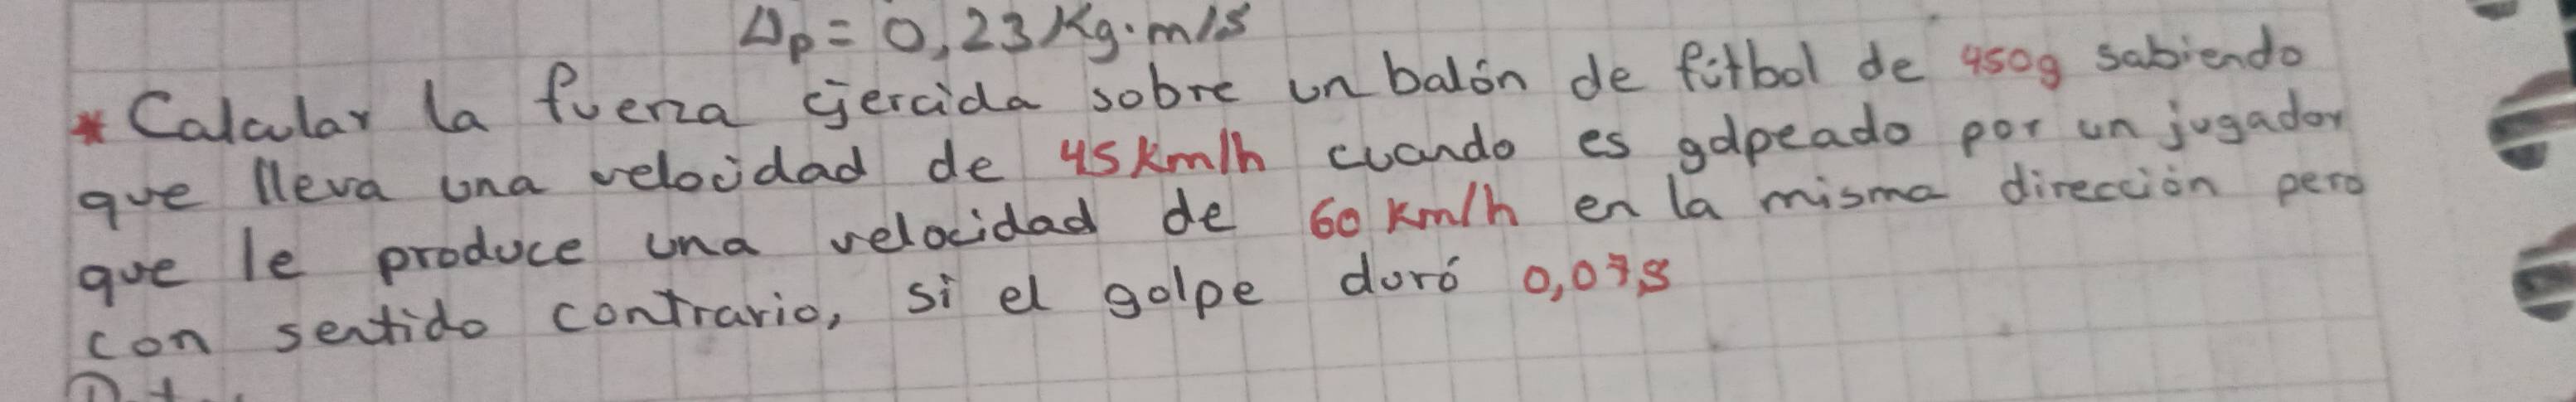 Δp = 0,23 Kg·m/s
* Calcular la fuerza ejercida sobre un balón de fútbol de 450g sabiendo
que lleva una velocidad de 45 km/h cuando es golpeado por un jugador
que le produce una velocidad de 60 km/h en la misma dirección pero
con sentido contrario, si el golpe duró 0,07s